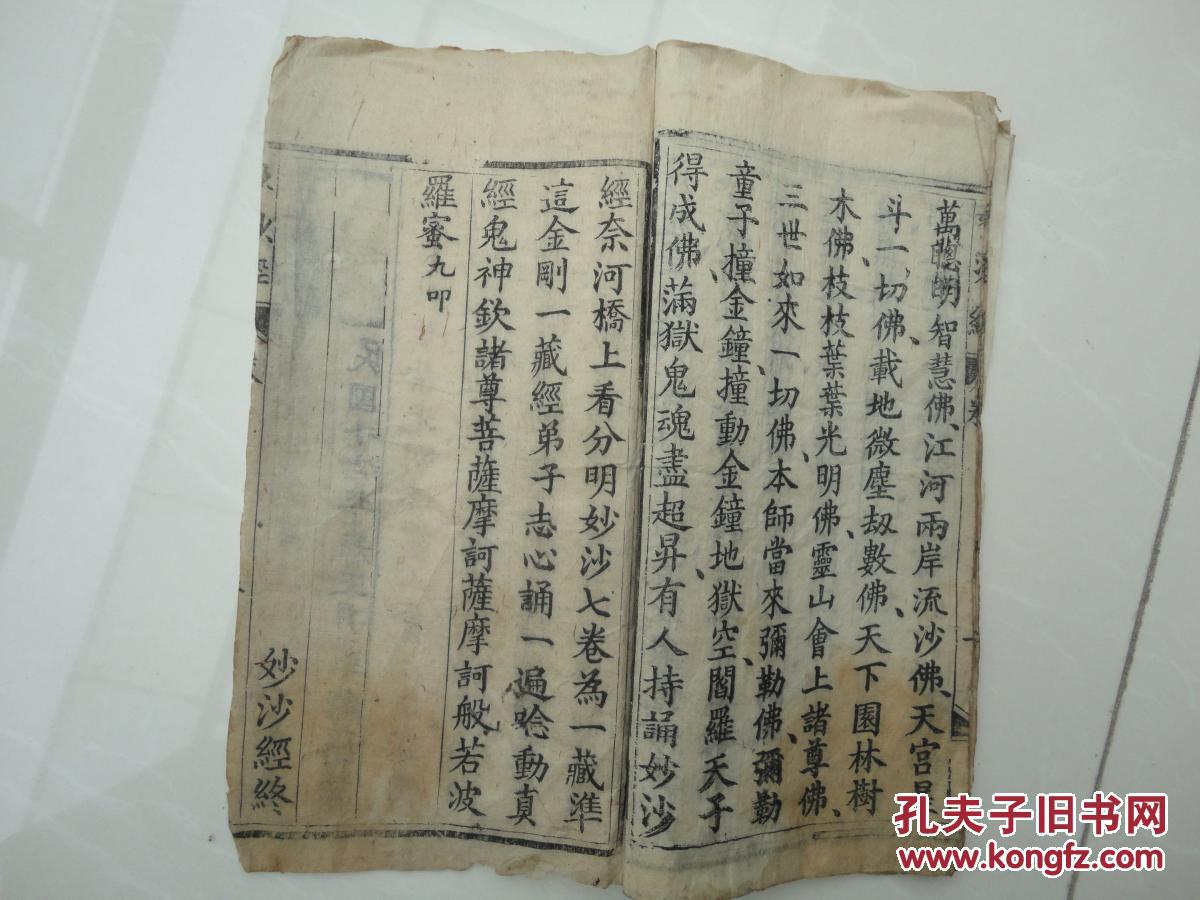 萬聰明智慧佛、江河兩岸流沙佛、天宮星
斗一切佛、載地微塵劫數佛、天下園林樹
木佛、枝枝葉葉光明佛、靈山會上諸尊佛、
三世如來一切佛、本師當來彌勒佛、彌勒
童子撞金鐘、撞動金鐘地獄空、閻羅天子
得成佛滿獄鬼魂盡超昇、有人持誦妙沙
經奈河橋上看分明妙沙七卷為一藏準
這金剛一藏經弟子志心誦一遍唸動真
經鬼神欽諸尊菩薩摩訶薩摩訶般若波
羅蜜九叩
妙沙經終
孔夫子旧书网
www.kongfz.com